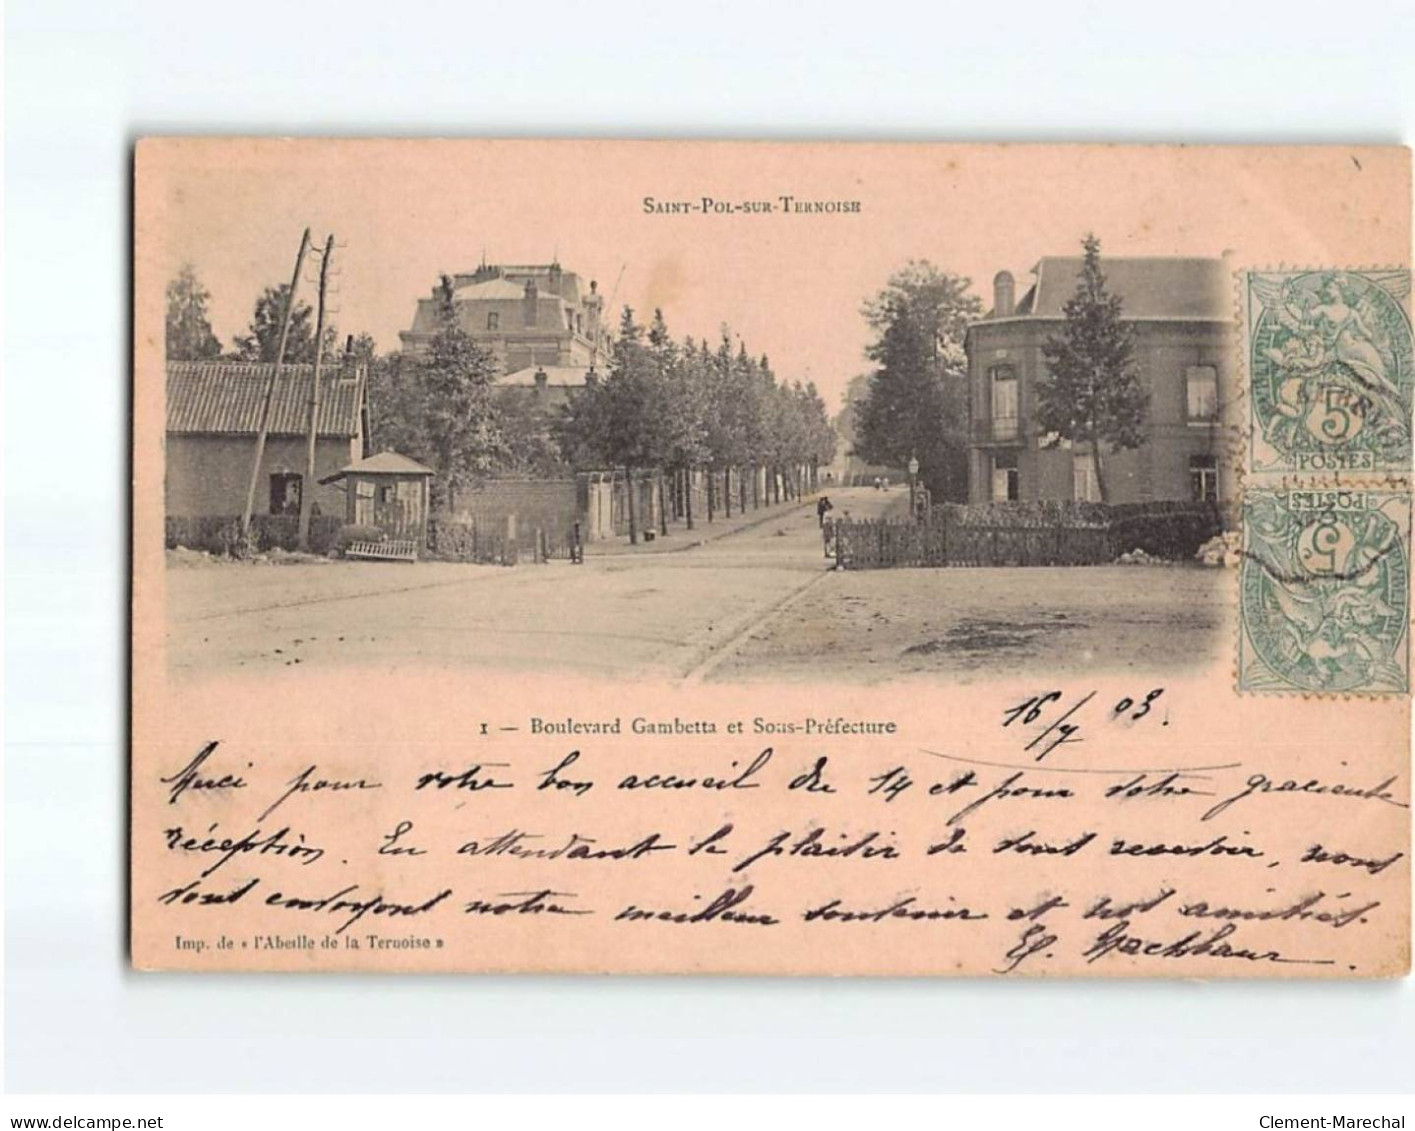 SAINT-POL-SUR-TERNOISE
5
POSTES
POSTES
5
1 — Boulevard Gambetta et Sous-Préfecture
16/7 03.
Merci pour votre bon accueil du 14 et pour votre gracieuse
réception. En attendant le plaisir de vous recevoir, nous
vous envoyons notre meilleur souvenir et nos amitiés.
Imp. de « l'Abeille de la Ternoise »
www.delcampe.net
Clement-Marechal